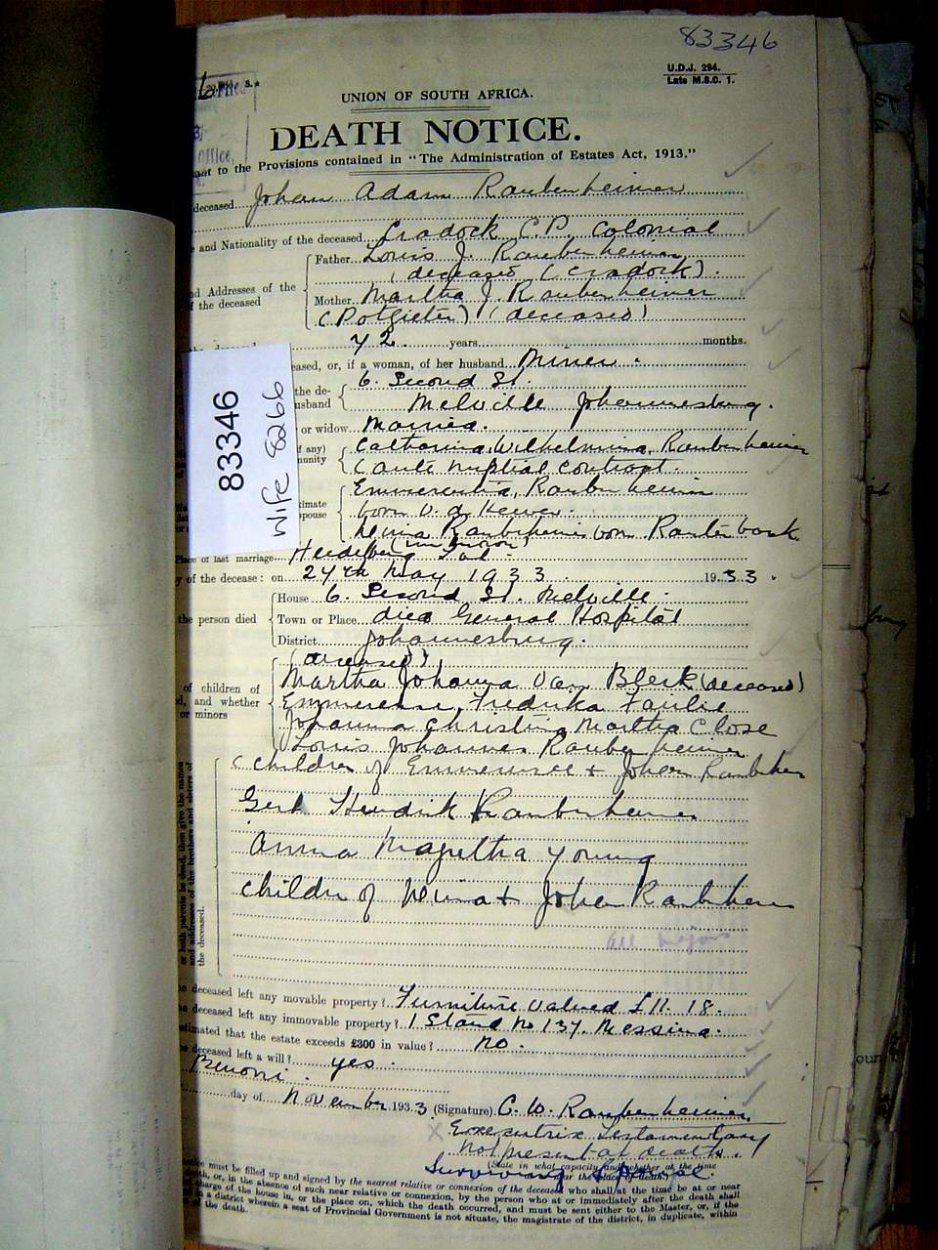 83346
U.D.J. 294.
Late M.S.C. 1.
UNION OF SOUTH AFRICA.
DEATH NOTICE.
to the Provisions contained in "The Administration of Estates Act, 1913."
deceased Johan Adam Raubenheimer
and Nationality of the deceased Cradock C.P. Colonial
Father Louis J. Raubenheimer
(deceased) (Cradock).
Addresses of the
the deceased
Mother Martha J. Raubenheimer
(Potgieter) (deceased)
72 years months.
or, if a woman, of her husband Miner.
6. Second St.
the de-
Melville Johannesburg.
or widow Married.
if any) Catharina Wilhelmina Raubenheimer
(ante nuptial contract.
Raubenheimer
born v.d.
Raubenheimer born Rautenbach
Place of last marriage Heidelberg
of the decease: on 24th May 1933. 1933.
House 6. Second St. Melville.
the person died Town or Place died General Hospital
District Johannesburg.
(deceased)
Martha Johanna Van Blerk (deceased)
of children of
and whether
or minors
Fredrika
Johanna Christina Martha Close
Louis Johannes Raubenheimer
(children of Emmerence + Johan
Gert Hendrik Raubenheimer
Anna Magretha Young
children of + Johan
all majors
or both parents be dead, then give the names
and addresses of the brothers and sisters of
the deceased.
deceased left any movable property? Furniture valued £11. 18.
deceased left any immovable property? 1 Stand No 137. Messina.
that the estate exceeds £300 in value? No.
deceased left a will? yes.
Benoni.
day of November 1933 (Signature) C. W. Raubenheimer
X Executrix Testamentary
Not present at death.
(State in what capacity and whether at the time
Surviving Spouse
must be filled up and signed by the nearest relative or connexion of the deceased who shall at the time be at or near
or, in the absence of such near relative or connexion, by the person who at or immediately after the death shall
of the house in, or the place on, which the death occurred, and must be sent either to the Master, or, if the
a district wherein a seat of Provincial Government is not situate, the magistrate of the district, in duplicate, within
the death.
83346
Wife 8266